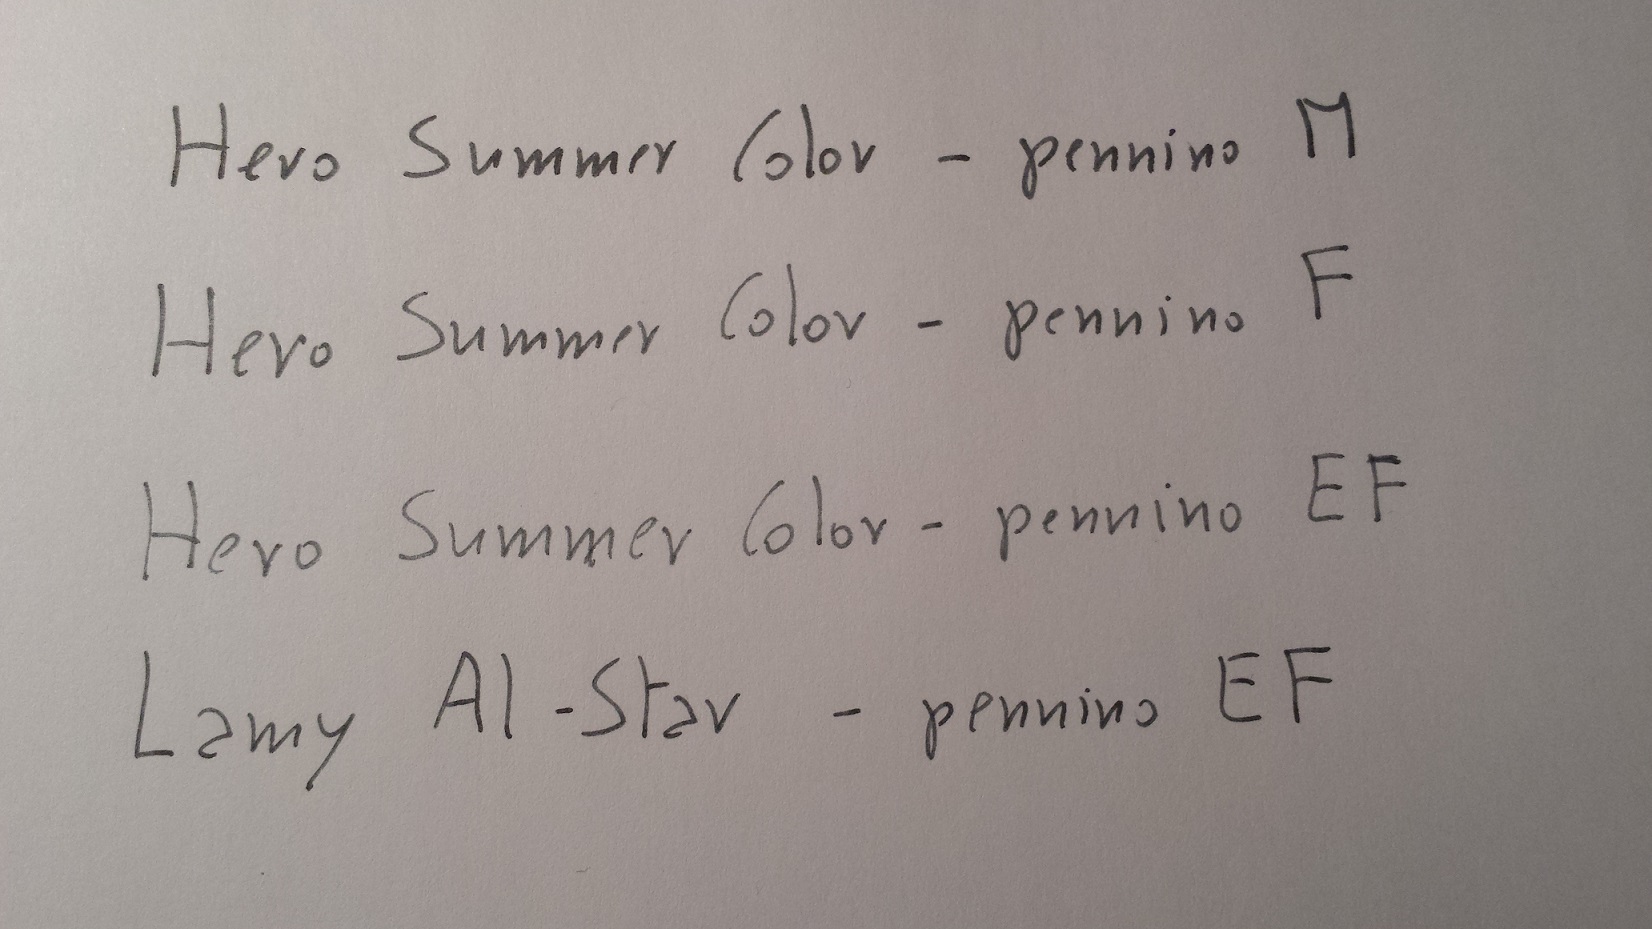 Hero Summer Color - pennino M
Hero Summer Color - pennino F
Hero Summer Color - pennino EF
Lamy Al-Star - pennino EF